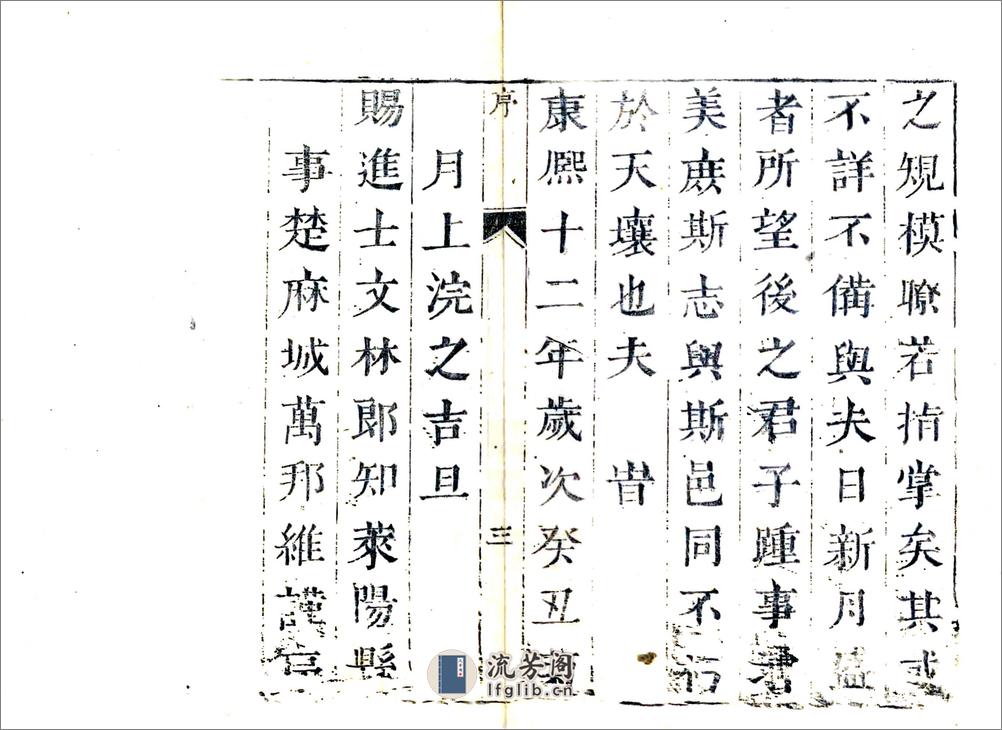 之規模瞭若指掌矣其或
不詳不備與夫日新月盛
者所望後之君子踵事增
美庶斯志與斯邑同不朽
於天壤也夫　旹
康熙十二年歲次癸丑
序
三
月上浣之吉旦
賜進士文林郎知萊陽縣
事楚麻城萬邦維謹言
流芳阁
lfglib.cn